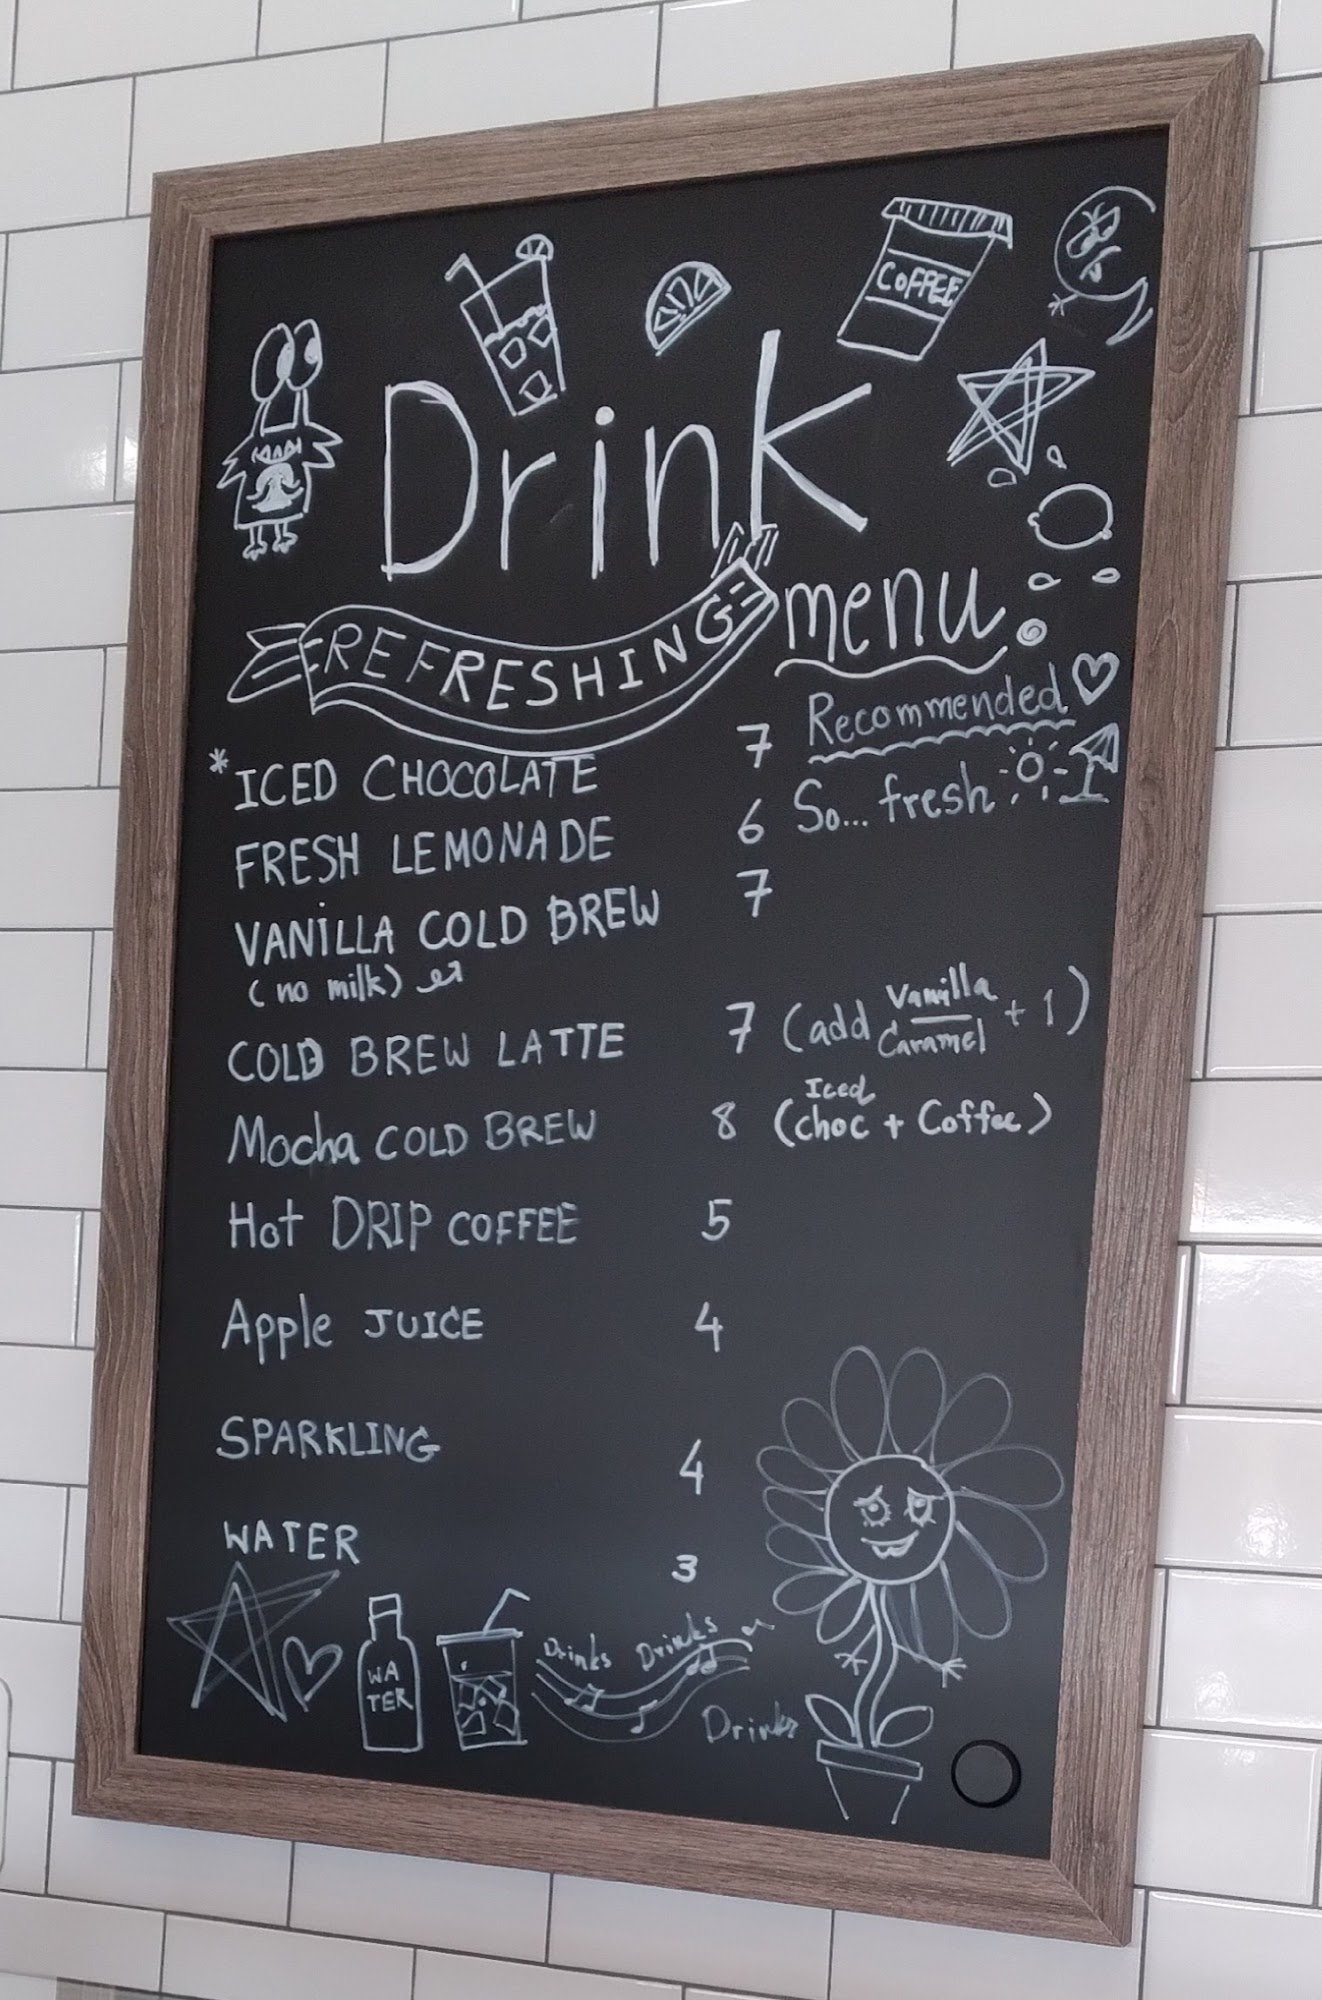 COFFEE
Drink
REFRESHING
menu
*ICED CHOCOLATE 7 Recommended
FRESH LEMONADE 6 So... fresh
VANILLA COLD BREW 7
(no milk)
COLD BREW LATTE 7 (add Vanilla Caramel + 1)
Mocha COLD BREW 8 (Iced choc + Coffee)
Hot DRIP COFFEE 5
Apple JUICE 4
SPARKLING 4
WATER 3
WA
TER
Drinks Drinks
Drinks